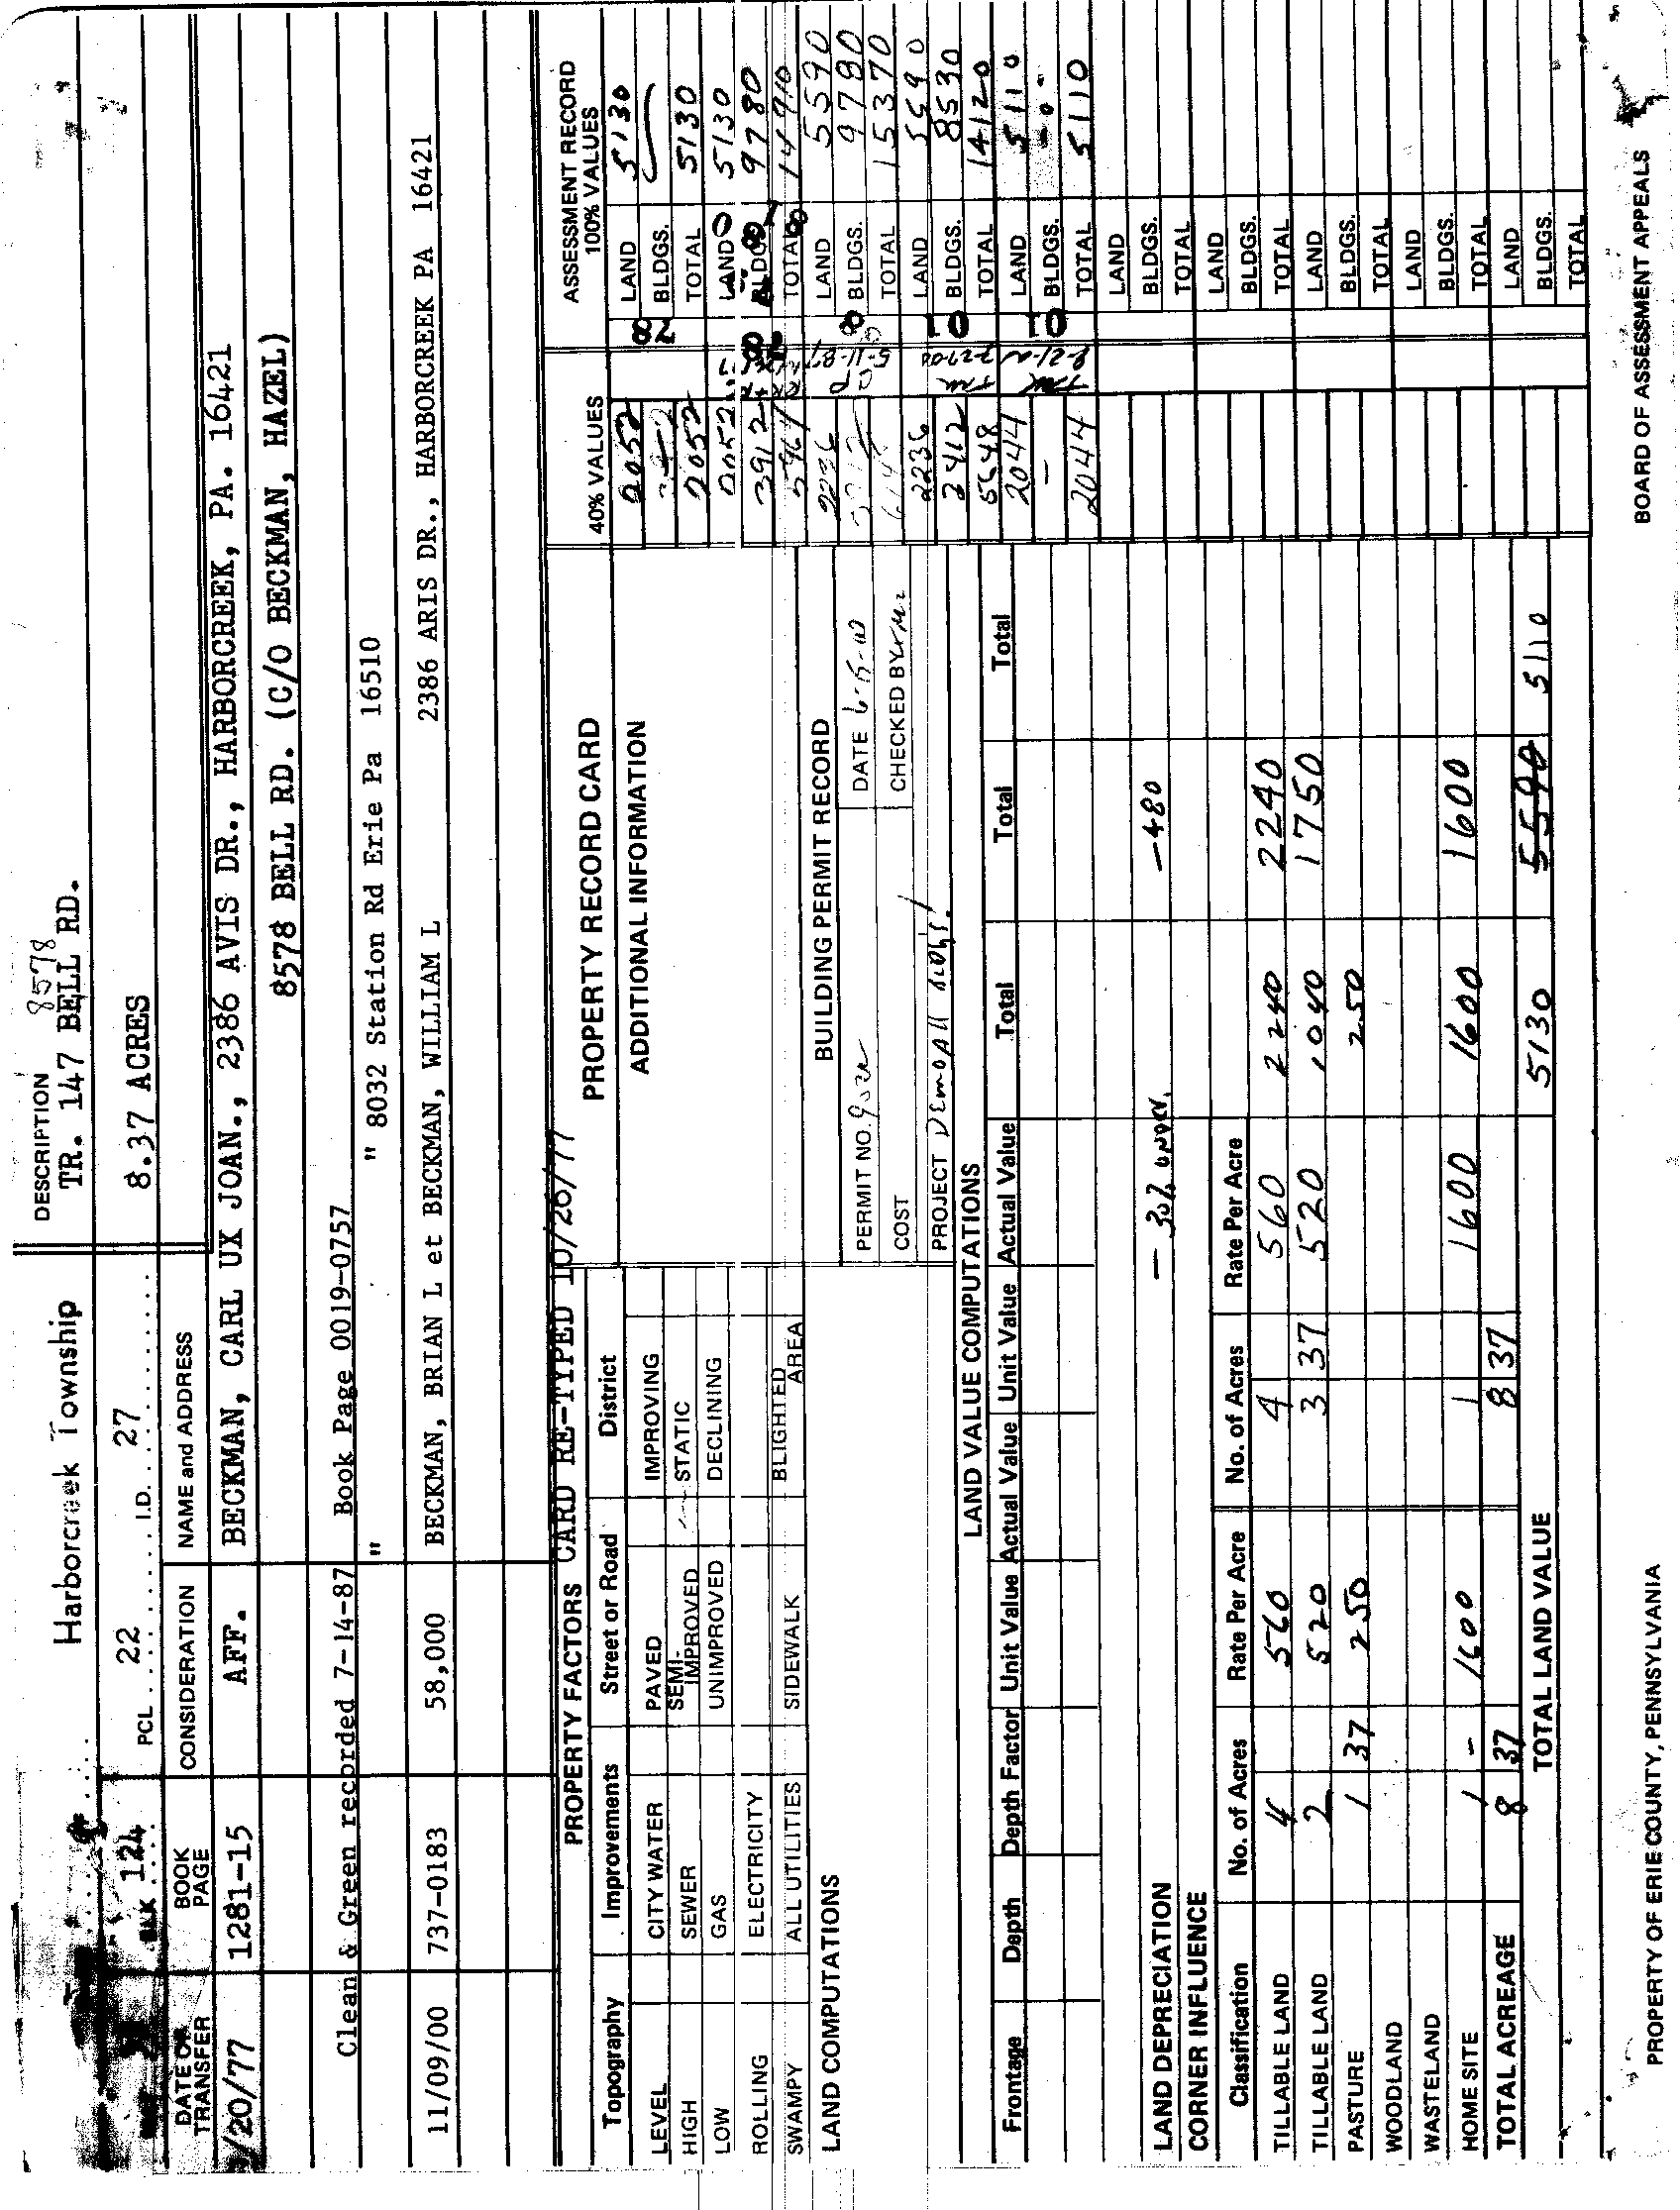 Harborcreek Township
DESCRIPTION
8578
TR. 147 BELL RD.
BLK 124 PCL 22 I.D. 27
8.37 ACRES
DATE OF TRANSFER BOOK PAGE CONSIDERATION NAME and ADDRESS
/20/77 1281-15 AFF. BECKMAN, CARL UX JOAN., 2386 AVIS DR., HARBORCREEK, PA. 16421
8578 BELL RD. (C/O BECKMAN, HAZEL)
Clean & Green recorded 7-14-87 Book Page 0019-0757
" " 8032 Station Rd Erie Pa 16510
11/09/00 737-0183 58,000 BECKMAN, BRIAN L et BECKMAN, WILLIAM L 2386 ARIS DR., HARBORCREEK PA 16421
CARD RE-TYPED 10/26/77
PROPERTY FACTORS
Topography Improvements Street or Road District
LEVEL CITY WATER PAVED IMPROVING
HIGH SEWER SEMI-IMPROVED STATIC
LOW GAS UNIMPROVED DECLINING
ROLLING ELECTRICITY
SWAMPY ALL UTILITIES SIDEWALK BLIGHTED AREA
LAND COMPUTATIONS
PROPERTY RECORD CARD
ADDITIONAL INFORMATION
BUILDING PERMIT RECORD
PERMIT NO. DATE
COST CHECKED BY
PROJECT Demo All bldgs!
40% VALUES ASSESSMENT RECORD 100% VALUES
2052 82 LAND 5130
BLDGS.
2052 TOTAL 5130
2052 LAND 5130
3912 BLDGS. 9780
5964 TOTAL 14910
2236 LAND 5590
5-11-87 BLDGS. 9780
TOTAL 15370
2236 LAND 5590
3412 01 BLDGS. 8530
5648 TOTAL 14120
2044 LAND 5110
- 01 BLDGS. -0-
2044 TOTAL 5110
LAND
BLDGS.
TOTAL
LAND
BLDGS.
TOTAL
LAND
BLDGS.
TOTAL
LAND
BLDGS.
TOTAL
LAND
BLDGS.
TOTAL
LAND VALUE COMPUTATIONS
Frontage Depth Depth Factor Unit Value Actual Value Unit Value Actual Value Total Total Total
LAND DEPRECIATION - 30% -480
CORNER INFLUENCE
Classification No. of Acres Rate Per Acre No. of Acres Rate Per Acre
TILLABLE LAND 4 560 4 560 2240 2240
TILLABLE LAND 2 520 3 37 520 1040 1750
PASTURE 1 37 250 250
WOODLAND
WASTELAND
HOME SITE 1 - 1600 1 1600 1600 1600
TOTAL ACREAGE 8 37 8 37
TOTAL LAND VALUE 5130 5590 5110
PROPERTY OF ERIE COUNTY, PENNSYLVANIA
BOARD OF ASSESSMENT APPEALS